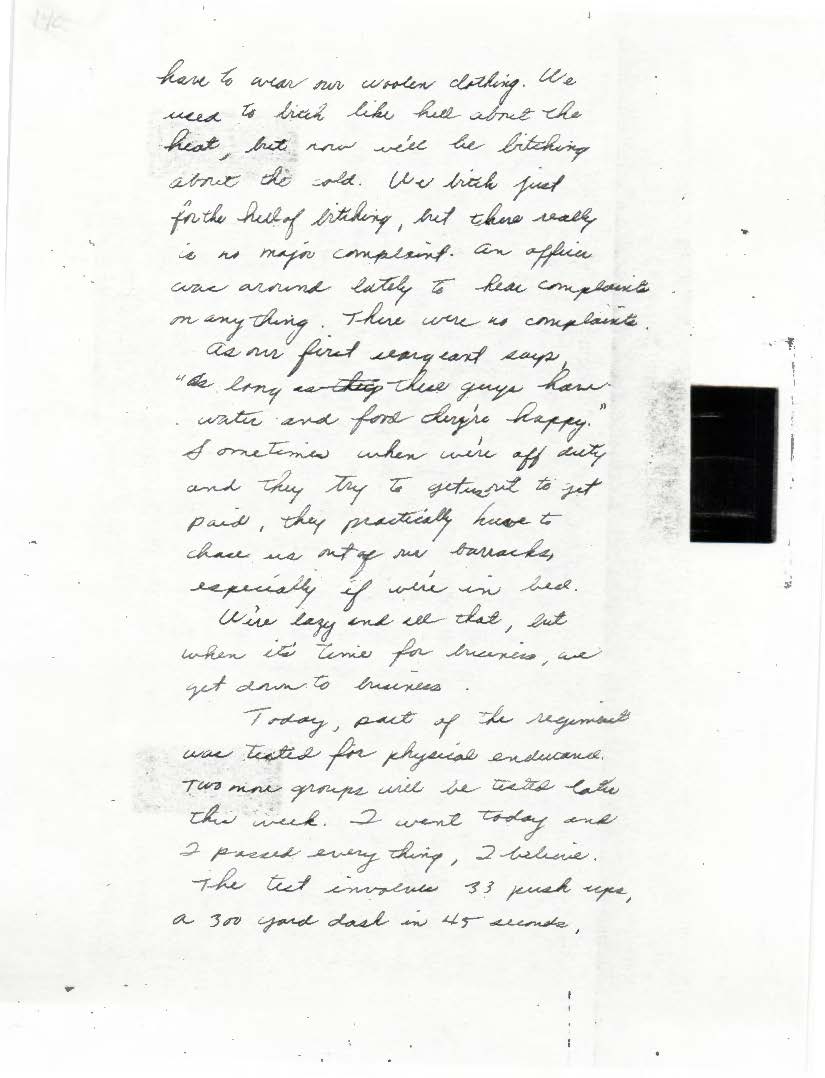 have to wear our woolen clothing. We
used to bitch like hell about the
heat, but now we'll be bitching
about the cold. We bitch just
for the hell of bitching, but there really
is no major complaint. An officer
was around lately to hear complaints
on anything. There were no complaints.
As our first seargeant says,
"As long as they these guys have
water and food they're happy."
Sometimes when we're off duty
and they try to get us out to get
paid, they practically have to
chase us out of our barracks,
especially if we're in bed.
We're lazy and all that, but
when it's time for business, we
get down to business.
Today, part of the regiment
was tested for physical endurance.
Two more groups will be tested later
this week. I went today and
I passed everything, I believe.
The test involves 33 push ups,
a 300 yard dash in 45 seconds,